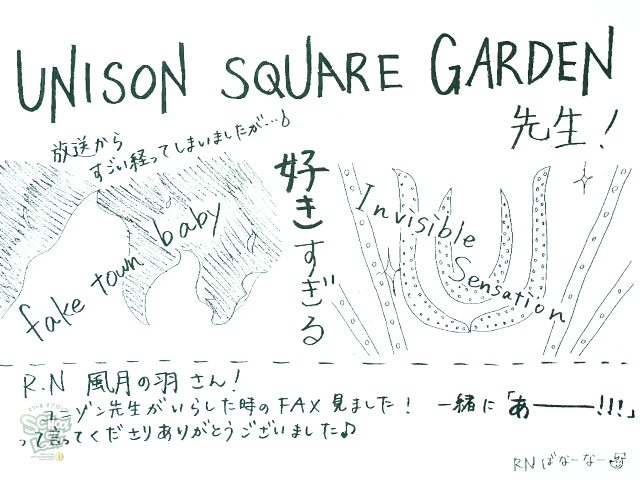 UNISON SQUARE GARDEN
先生!
放送から
すごい経ってしまいましたが…♪
好きすぎる
fake town baby
Invisible
Sensation
R.N 風月の羽さん!
ユニゾン先生がいらした時のFAX見ました! 一緒に「あ———!!!」
って言ってくださりありがとうございました♪
RN ばな〜な〜